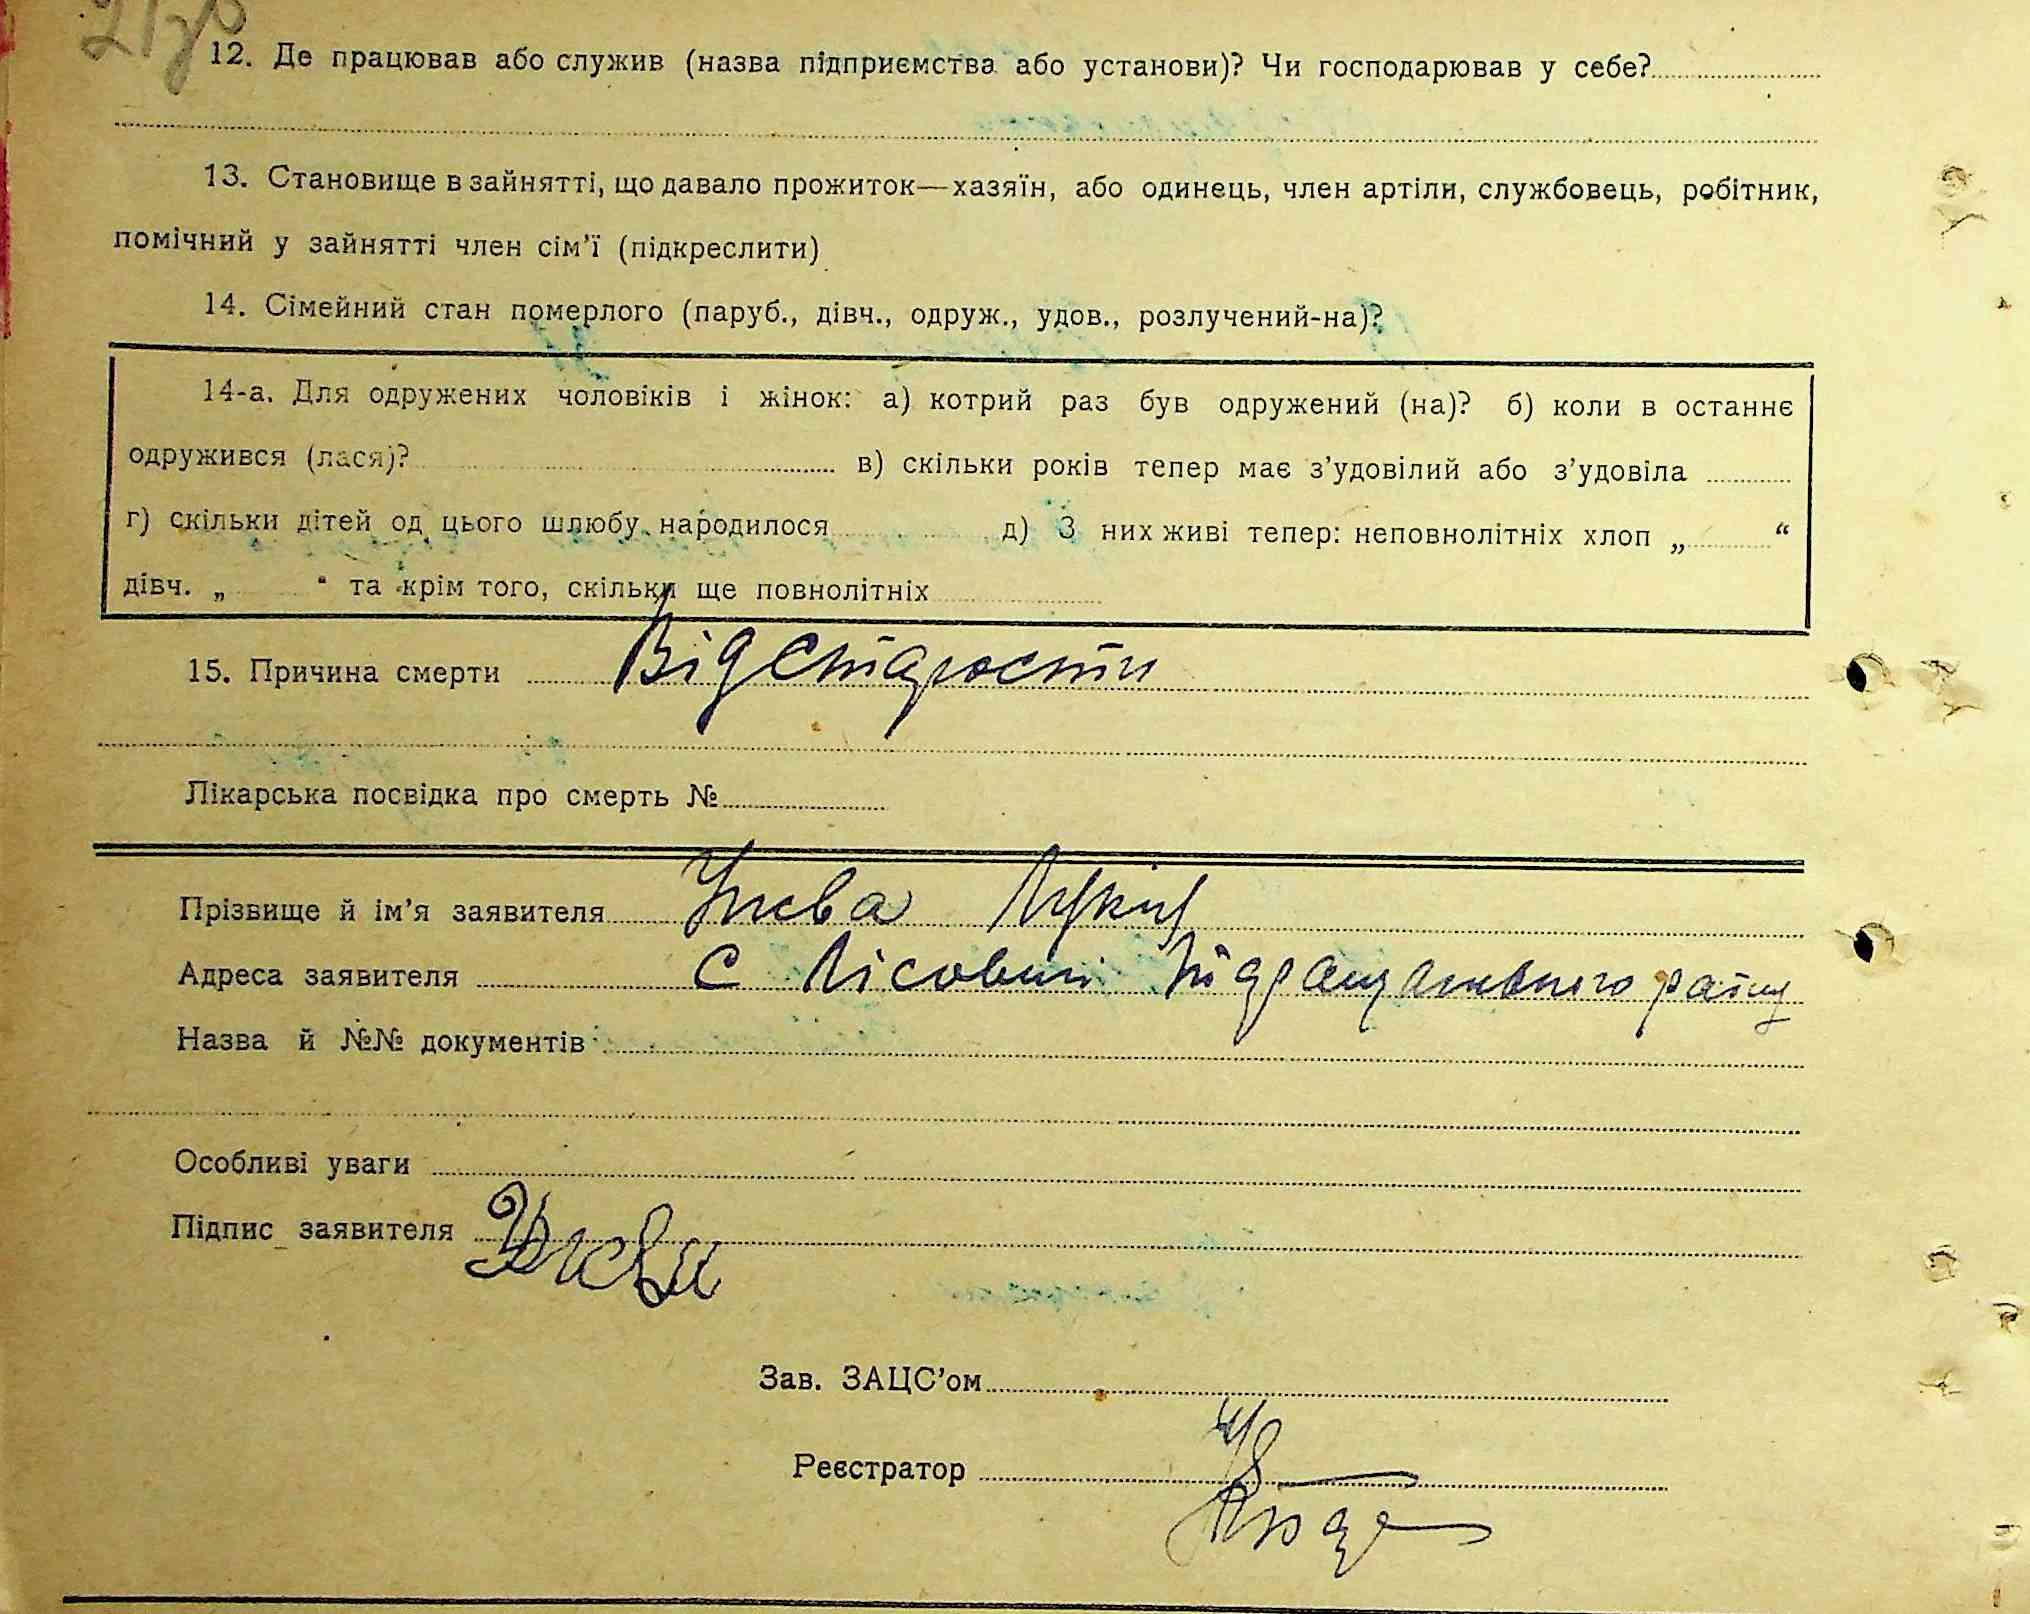 12. Де працював або служив (назва підприємства або установи)? Чи господарював у себе?
13. Становище в зайнятті, що давало прожиток—хазяїн, або одинець, член артіли, службовець, робітник,
помічний у зайнятті член сім'ї (підкреслити)
14. Сімейний стан померлого (паруб., дівч., одруж., удов., розлучений-на)?
14-а. Для одружених чоловіків і жінок: а) котрий раз був одружений (на)? б) коли в останнє
одружився (лася)? в) скільки років тепер має з'удовілий або з'удовіла
г) скільки дітей од цього шлюбу народилося д) З них живі тепер: неповнолітніх хлоп „ “
дівч. „ “ та крім того, скільки ще повнолітніх
15. Причина смерти Від старости
Лікарська посвідка про смерть №
Прізвище й ім'я заявителя
Адреса заявителя с Лісовичі району
Назва й №№ документів
Особливі уваги
Підпис заявителя
Зав. ЗАЦС'ом
Реєстратор